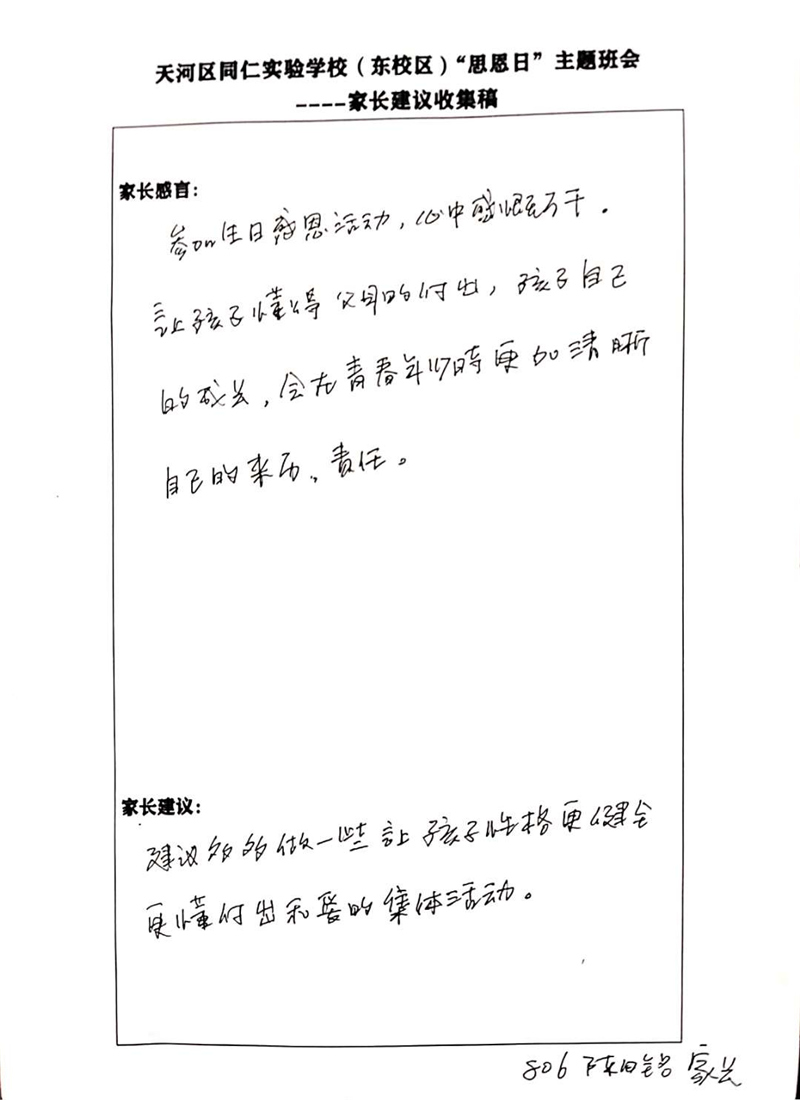 天河区同仁实验学校（东校区）“思恩日”主题班会
----家长建议收集稿
家长感言：
参加生日感恩活动，心中感慨万千。
让孩子懂得父母的付出，孩子自己
的成长，会在青春年少时更加清晰
自己的来历、责任。
家长建议：
建议多多做一些让孩子性格更健全
更懂付出和爱的集体活动。
806 陈日铭 家长